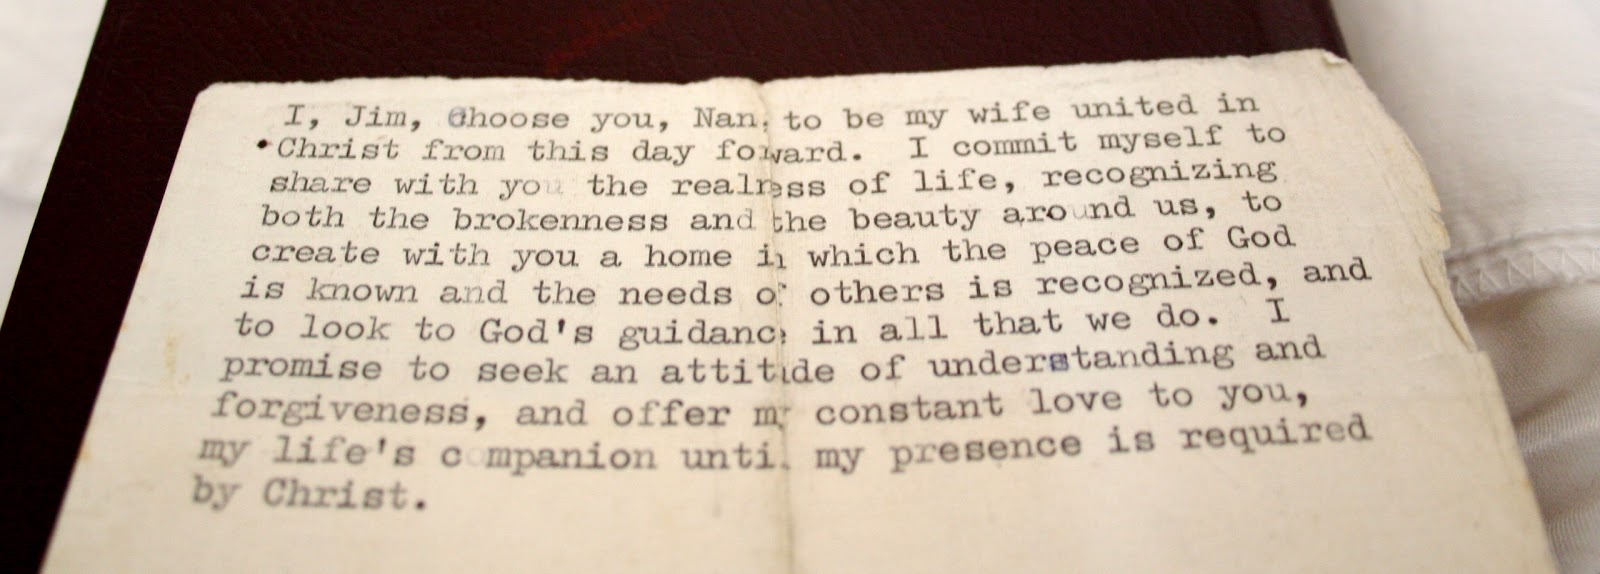 I, Jim, Choose you, Nan, to be my wife united in
Christ from this day foward. I commit myself to
share with you the realness of life, recognizing
both the brokenness and the beauty around us, to
create with you a home in which the peace of God
is known and the needs of others is recognized, and
to look to God's guidance in all that we do. I
promise to seek an attitude of understanding and
forgiveness, and offer my constant love to you,
my life's companion until my presence is required
by Christ.